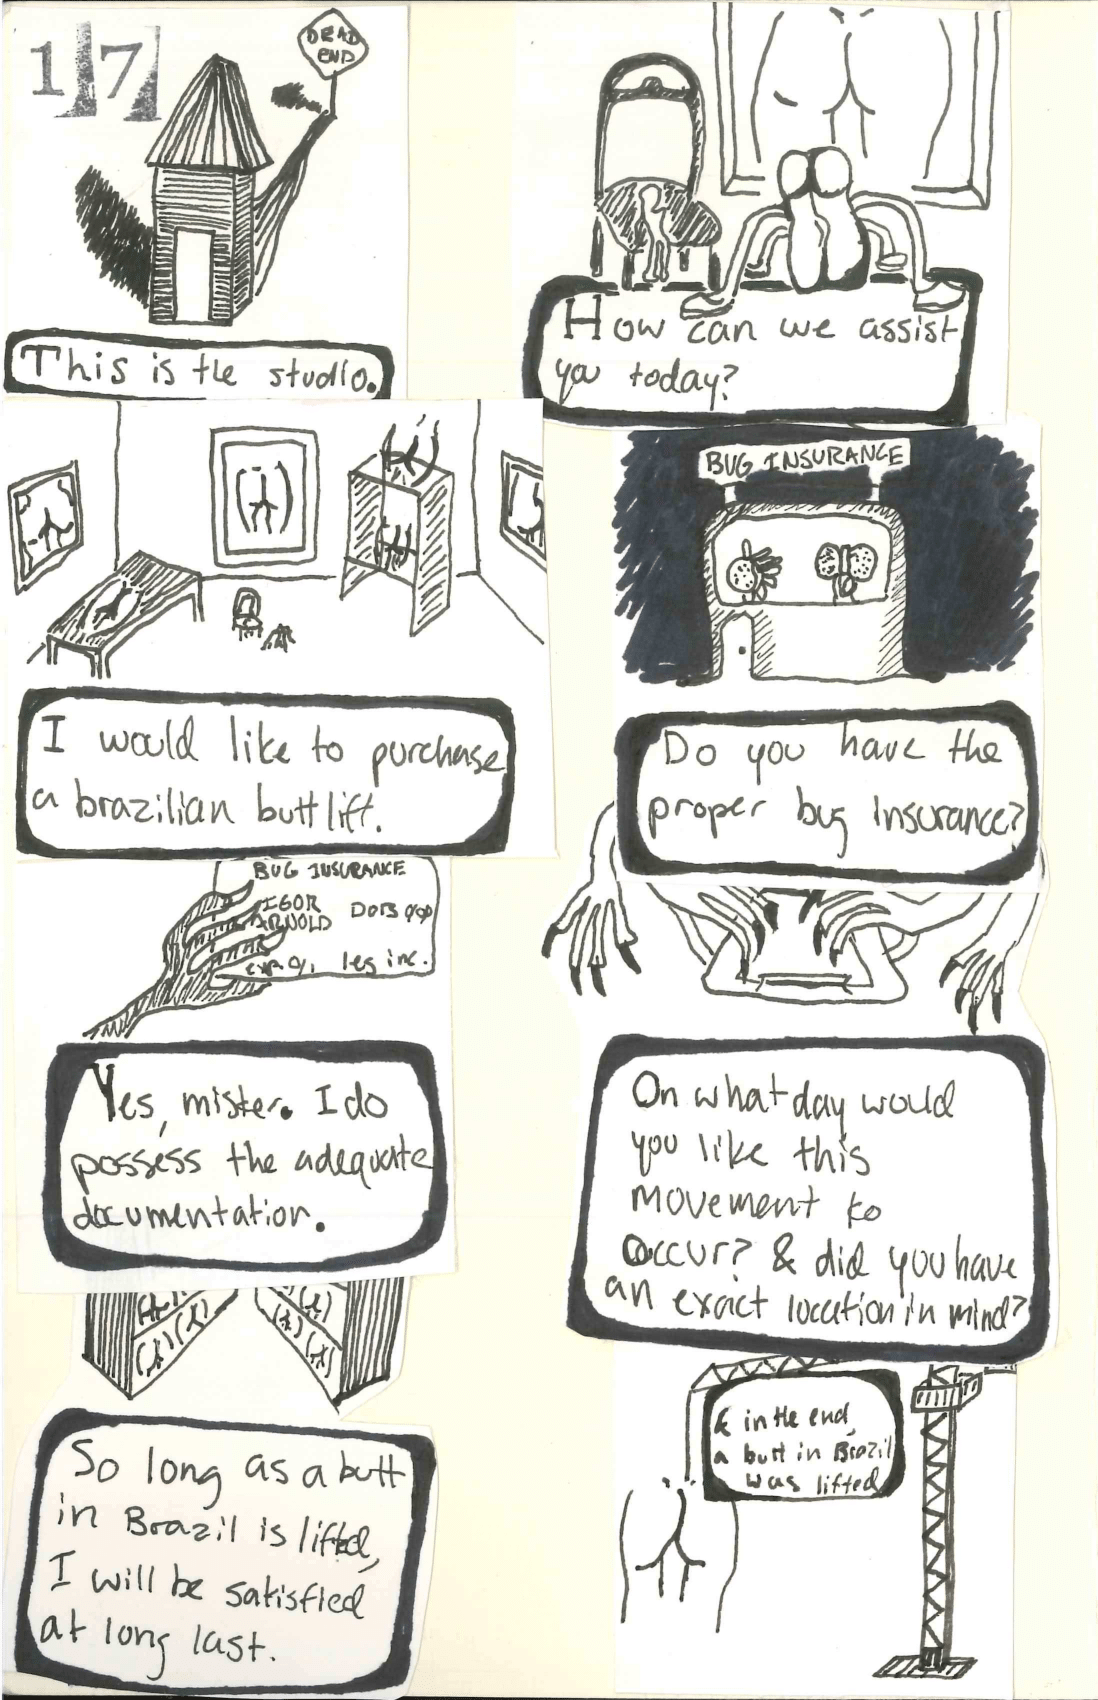 17
DEAD
END
This is the studio.
How can we assist
you today?
I would like to purchase
a brazilian butt lift.
BUG INSURANCE
Do you have the
proper bug insurance?
BUG INSURANCE
IGOR
ARNOLD
leg inc.
Yes, mister. I do
possess the adequate
documentation.
On what day would
you like this
movement to
occur? & did you have
an exact location in mind?
So long as a butt
in Brazil is lifted,
I will be satisfied
at long last.
& in the end,
a butt in Brazil
was lifted